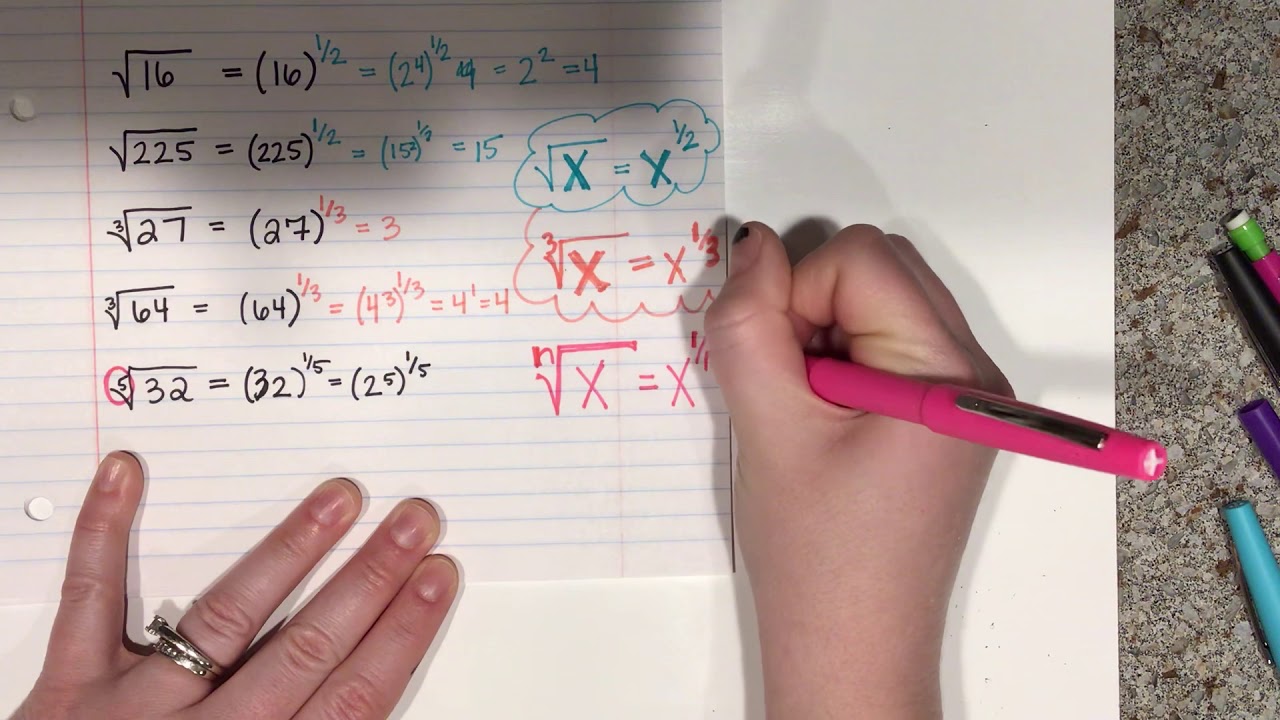 √16 = (16)^1/2 = (2^4)^1/2 = 2^2 = 4
√225 = (225)^1/2 = (15^2)^1/2 = 15
√x = x^1/2
∛27 = (27)^1/3 = 3
∛x = x^1/3
∛64 = (64)^1/3 = (4^3)^1/3 = 4^1 = 4
⁵√32 = (32)^1/5 = (2^5)^1/5
ⁿ√x = x^1/